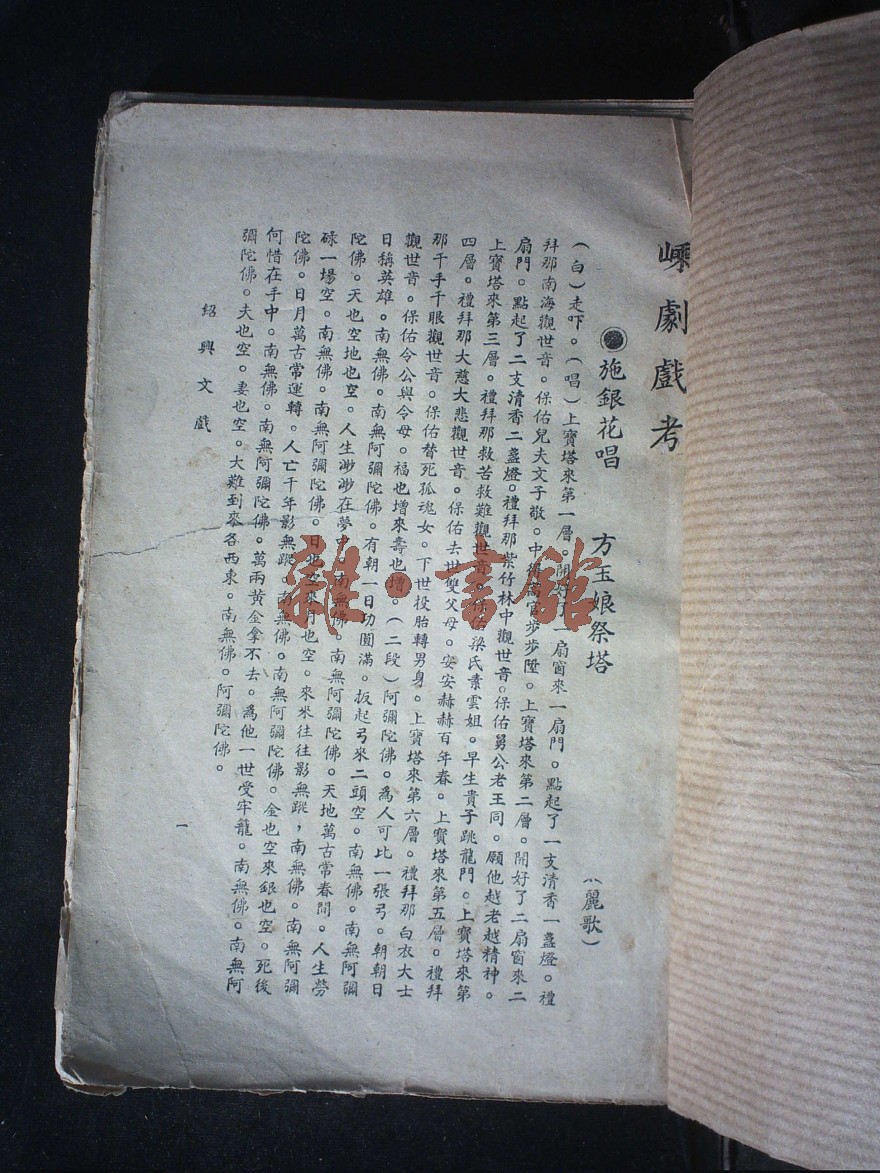 嵊劇戲考
施銀花唱 方玉娘祭塔 (麗歌)
(白)走吓。(唱)上寶塔來第一層。開好了一扇窗來一扇門。點起了一支清香一盞燈。禮
拜那南海觀世音。保佑兒夫文子敬。中得高官步步陞。上寶塔來第二層。開好了二扇窗來二
扇門。點起了二支清香二盞燈。禮拜那紫竹林中觀世音。保佑舅公老王同。願他越老越精神。
上寶塔來第三層。禮拜那救苦救難觀世音。保佑梁氏素雲姐。早生貴子跳龍門。上寶塔來第
四層。禮拜那大慈大悲觀世音。保佑去世雙父母。安安赫赫百年春。上寶塔來第五層。禮拜
那千手千眼觀世音。保佑替死孤魂女。下世投胎轉男身。上寶塔來第六層。禮拜那白衣大士
觀世音。保佑令公與令母。福也增來壽也增。(二段)阿彌陀佛。為人可比一張弓。朝朝日
日稱英雄。南無佛。南無阿彌陀佛。有朝一日功圓滿。扳起弓來二頭空。南無佛。南無阿彌
陀佛。天也空地也空。人生渺渺在夢中。南無佛。南無阿彌陀佛。天地萬古常春間。人生勞
碌一場空。南無佛。南無阿彌陀佛。日也空來月也空。來來往往影無蹤，南無佛。南無阿彌
陀佛。日月萬古常運轉。人亡千年影無蹤。南無佛。南無阿彌陀佛。金也空來銀也空。死後
何惜在手中。南無佛。南無阿彌陀佛。萬兩黃金拿不去。為他一世受牢龍。南無佛。南無阿
彌陀佛。夫也空。妻也空。大難到來各西東。南無佛。阿彌陀佛。
紹興文戲
一
雜·書館